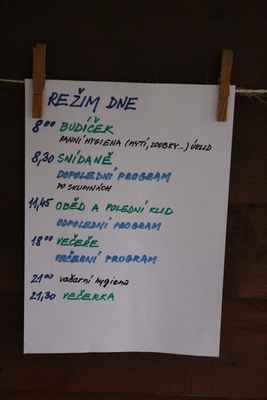 REŽIM DNE
8⁰⁰ BUDÍČEK
RANNÍ HYGIENA (MYTÍ, ZOUBKY...) ÚKLID
8,30 SNÍDANĚ
DOPOLEDNÍ PROGRAM
PO SKUPINÁCH
11,45 OBĚD A POLEDNÍ KLID
ODPOLEDNÍ PROGRAM
18⁰⁰ VEČEŘE
VEČERNÍ PROGRAM
21⁰⁰ večerní hygiena
21,30 VEČERKA